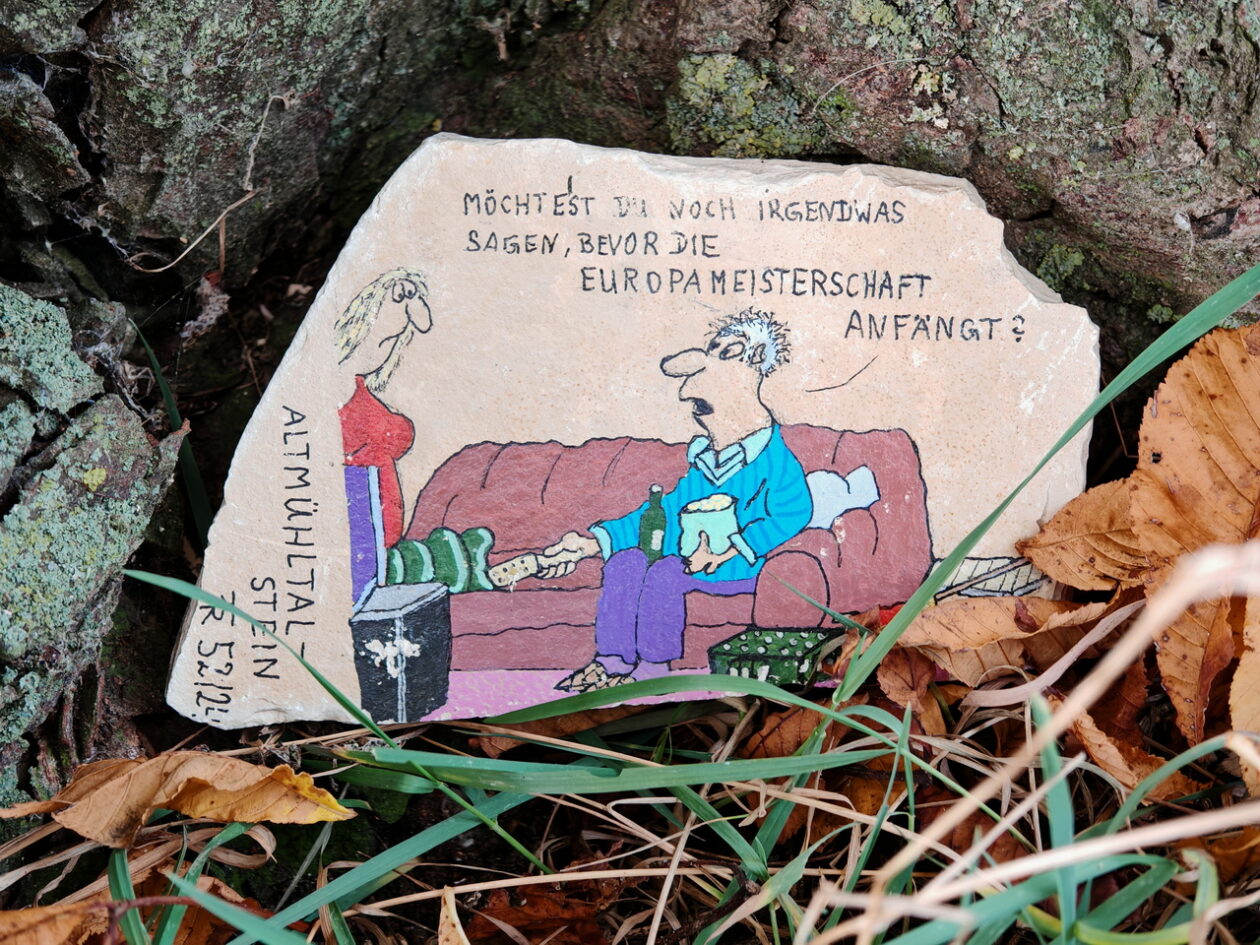 MÖCHTEST DU NOCH IRGENDWAS
SAGEN, BEVOR DIE
EUROPAMEISTERSCHAFT
ANFÄNGT?
ALTMÜHLTAL-
STEIN